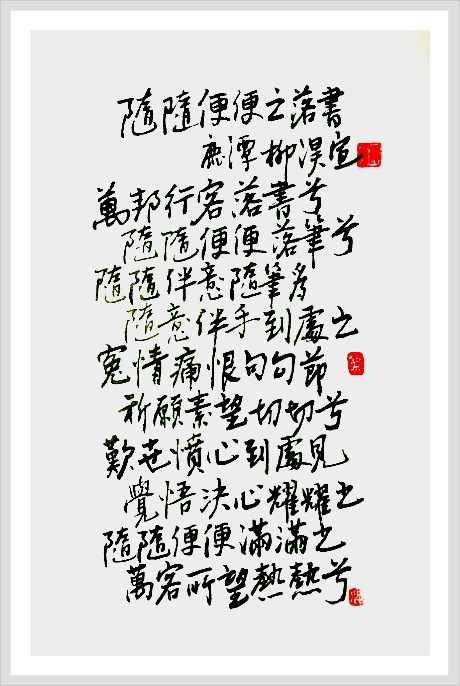 隨隨便便之落書
鹿潭 柳淏宣
萬邦行客落書兮
隨隨便便落筆兮
隨隨伴意隨筆多
隨意伴手到處之
冤情痛恨句句節
祈願素望切切兮
歎世憤心到處見
覺悟決心耀耀之
隨隨便便滿滿之
萬客所望熱熱兮